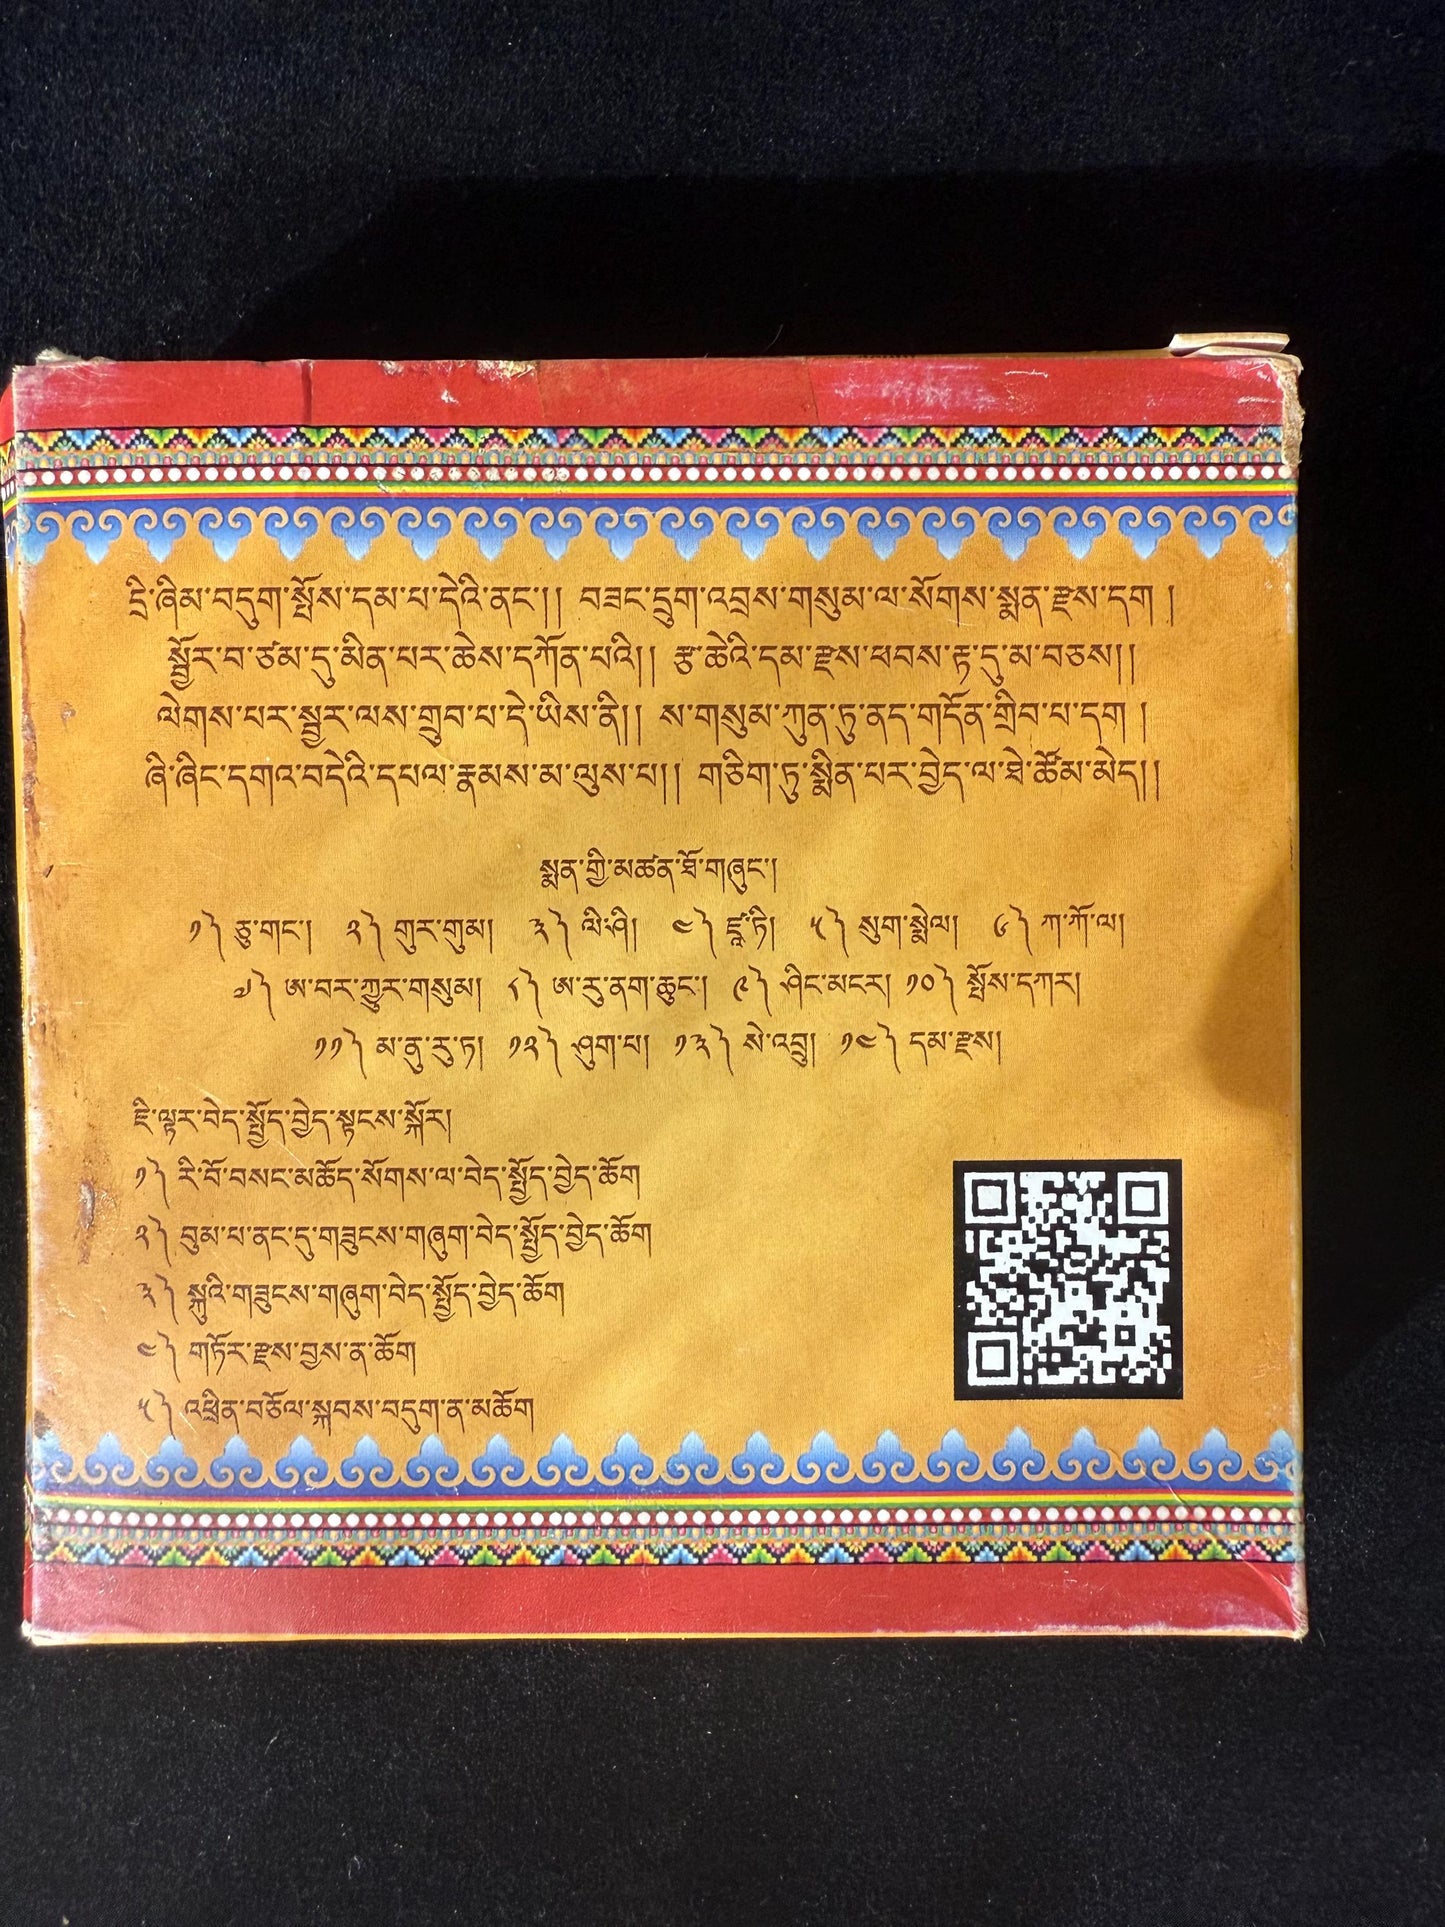 དྲི་ཞིམ་བདུག་སྤོས་དམ་པ་དེའི་ནང་།། བཟང་དྲུག་འབྲས་གསུམ་ལ་སོགས་སྨན་རྫས་དག །
སྦྱོར་བ་ཙམ་དུ་མིན་པར་ཆེས་དཀོན་པའི།། རྩ་ཆེའི་དམ་རྫས་ཕབས་རྟ་དུ་མ་བཅས།།
ལེགས་པར་སྦྱར་ལས་གྲུབ་པ་དེ་ཡིས་ནི།། ས་གསུམ་ཀུན་ཏུ་ནད་གདོན་གྲིབ་པ་དག །
ཞི་ཞིང་དགའ་བདེའི་དཔལ་རྣམས་མ་ལུས་པ།། གཅིག་ཏུ་སྨིན་པར་བྱེད་ལ་ཐེ་ཚོམ་མེད།།
སྨན་གྱི་མཚན་ཐོ་གཞུང་།
༡༽ ཅུ་གང་། ༢༽ གུར་གུམ། ༣༽ ལི་ཤི། ༤༽ ཛཱ་ཏི། ༥༽ སུག་སྨེལ། ༦༽ ཀ་ཀོ་ལ།
༧༽ ཨ་བར་ཀྱུར་གསུམ། ༨༽ ཨ་རུ་ནག་ཆུང་། ༩༽ ཤིང་མངར། ༡༠༽ སྤོས་དཀར།
༡༡༽ མ་ནུ་རུ་ཏ། ༡༢༽ ཤུག་པ། ༡༣༽ སེ་འབྲུ། ༡༤༽ དམ་རྫས།
ཇི་ལྟར་བེད་སྤྱོད་བྱེད་སྟངས་སྐོར།
༡༽ རི་བོ་བསང་མཆོད་སོགས་ལ་བེད་སྤྱོད་བྱེད་ཆོག
༢༽ བུམ་པ་ནང་དུ་གཟུངས་གཞུག་བེད་སྤྱོད་བྱེད་ཆོག
༣༽ སྐུའི་གཟུངས་གཞུག་བེད་སྤྱོད་བྱེད་ཆོག
༤༽ གཏོར་རྫས་བྱས་ན་ཆོག
༥༽ འཕྲིན་བཅོལ་སྐབས་བདུག་ན་མཆོག